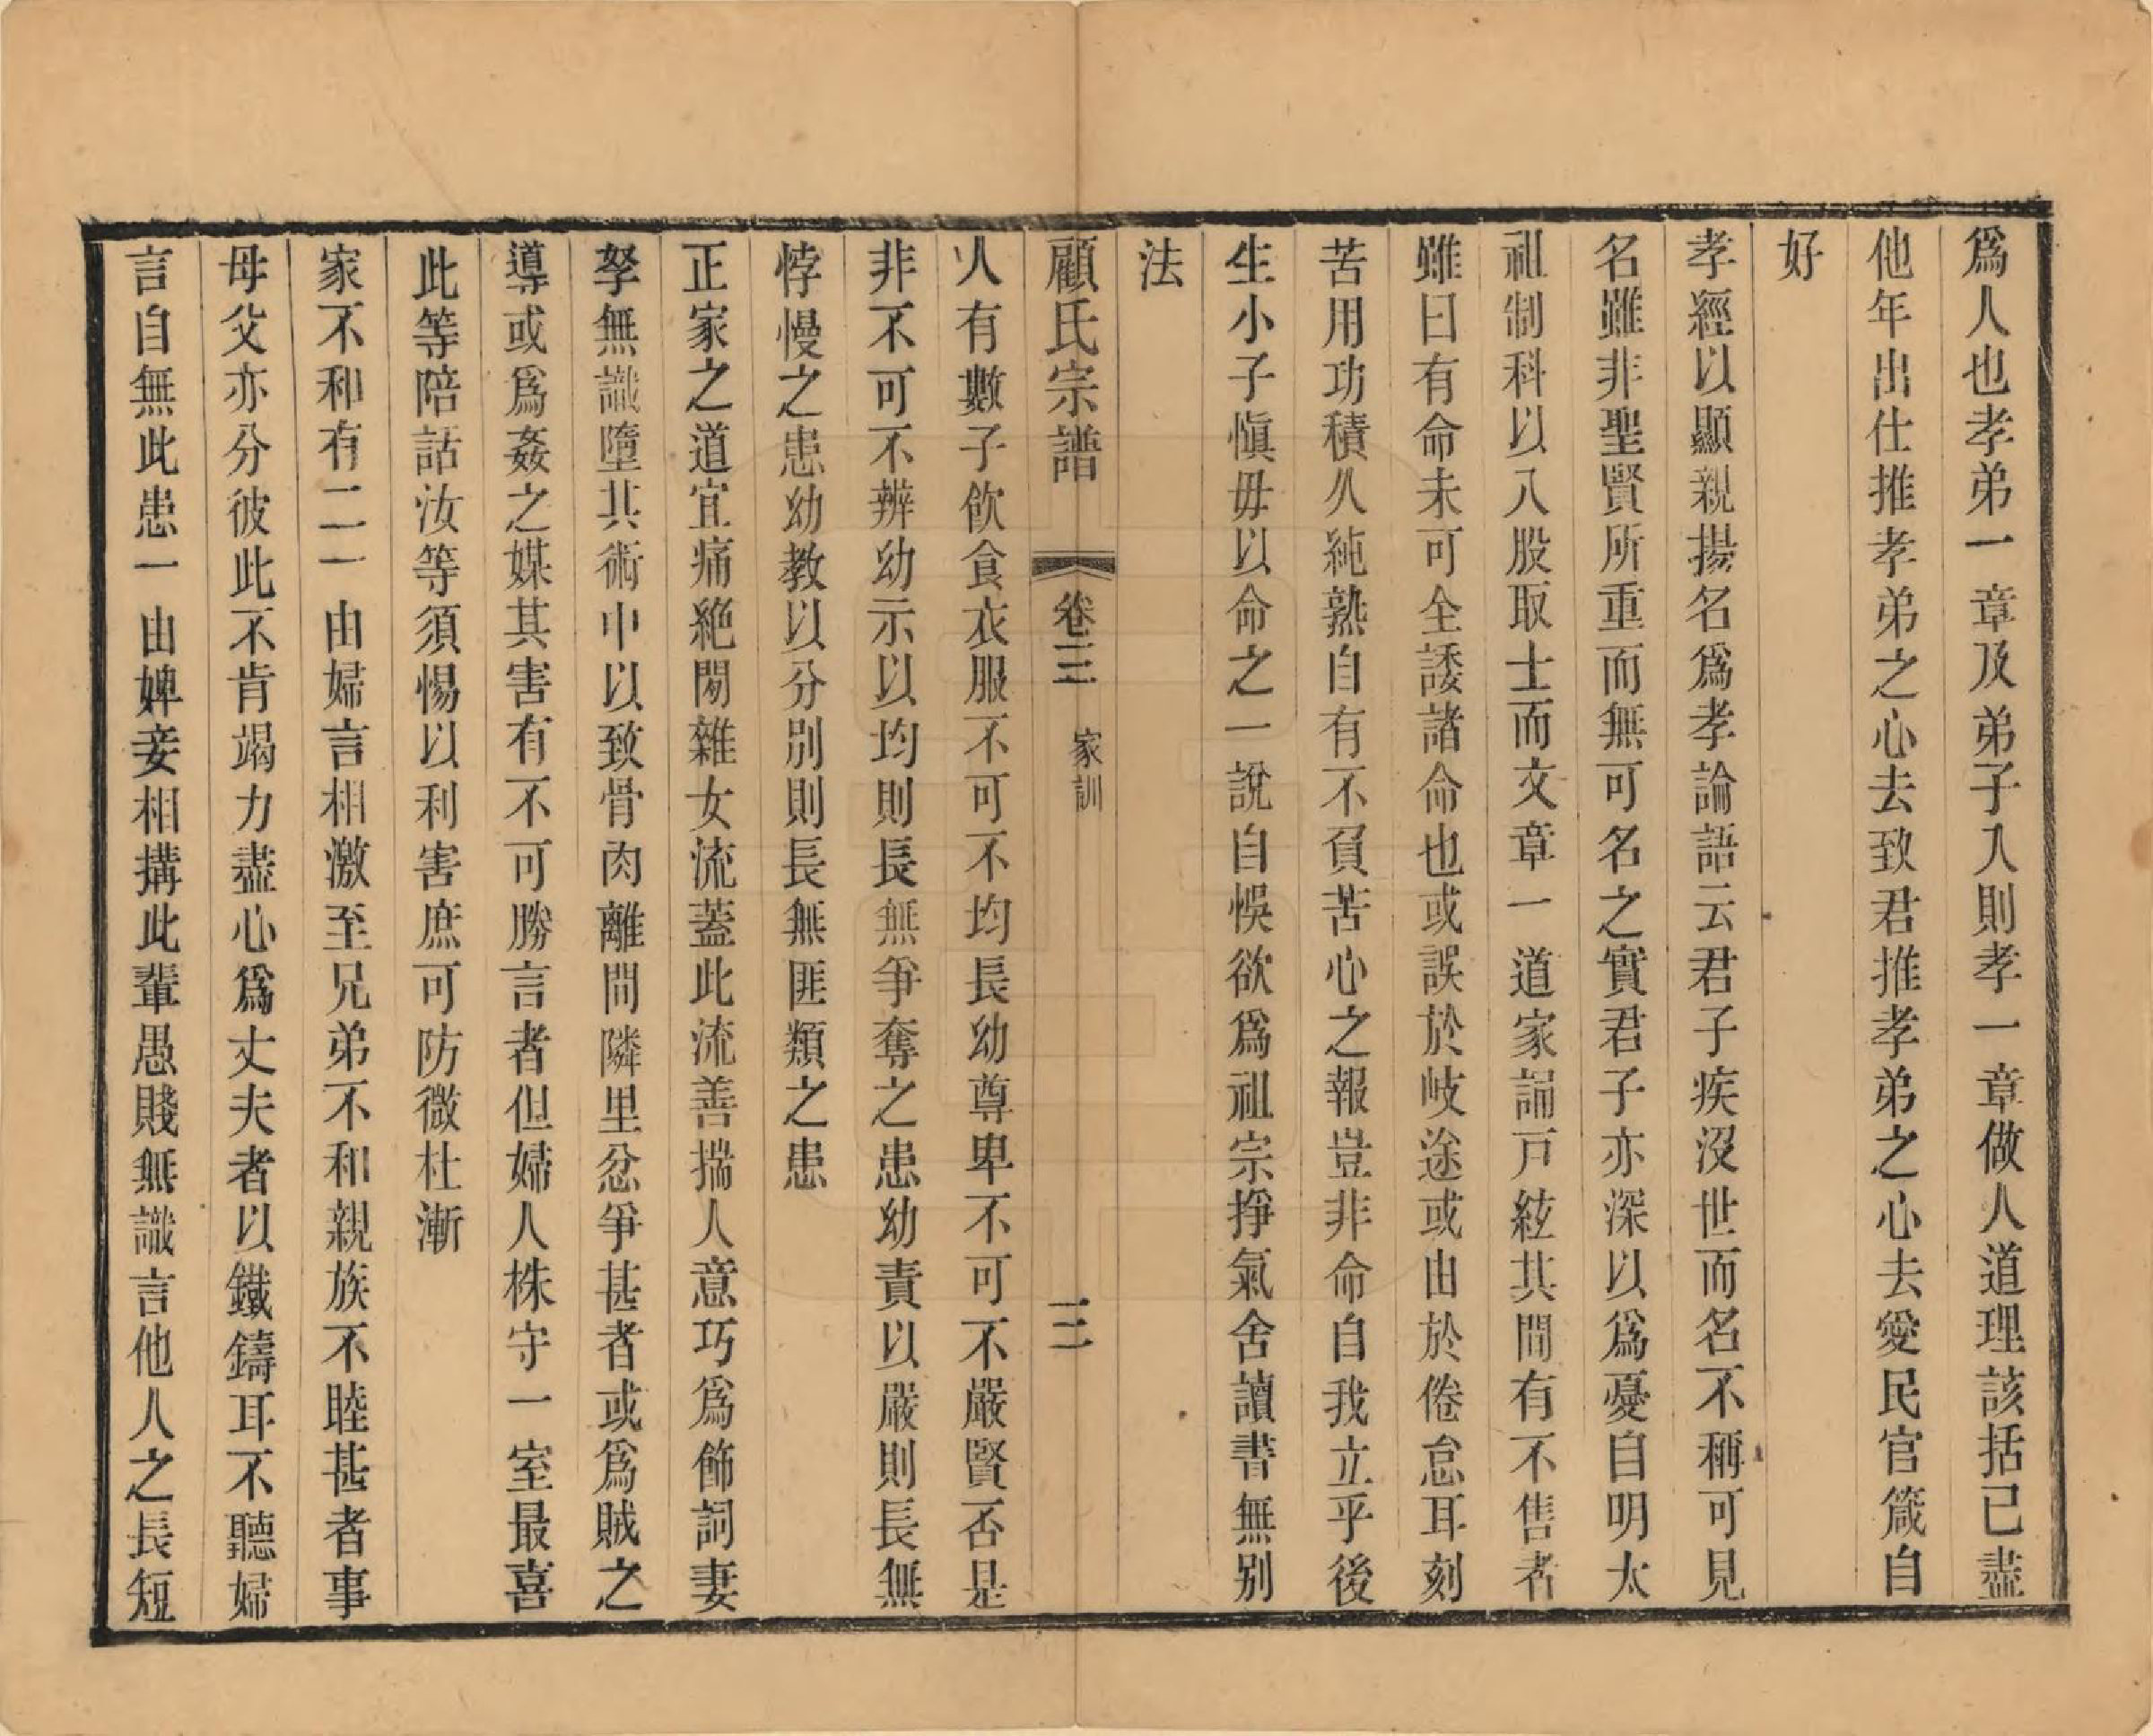 爲人也孝弟一章及弟子入則孝一章做人道理該括已盡
他年出仕推孝弟之心去致君推孝弟之心去愛民官箴自
好
孝經以顯親揚名爲孝論語云君子疾沒世而名不稱可見
名雖非聖賢所重而無可名之實君子亦深以爲憂自明太
祖制科以八股取士而文章一道家誦戸絃其間有不售者
雖曰有命未可全諉諸命也或誤於岐途或由於倦怠耳刻
苦用功積久純熟自有不負苦心之報豈非命自我立乎後
生小子愼毋以命之一說自悞欲爲祖宗掙氣舍讀書無别
法
顧氏宗譜 卷三 家訓 三
人有數子飮食衣服不可不均長幼尊卑不可不嚴賢否是
非不可不辨幼示以均則長無爭奪之患幼責以嚴則長無
悖慢之患幼教以分別則長無匪類之患
正家之道宜痛絶閑雜女流蓋此流善揣人意巧爲飾詞妻
孥無識墮其術中以致骨肉離間隣里忿爭甚者或爲賊之
導或爲姦之媒其害有不可勝言者但婦人株守一室最喜
此等陪話汝等須惕以利害庶可防微杜漸
家不和有二一由婦言相激至兄弟不和親族不睦甚者事
母父亦分彼此不肯竭力盡心爲丈夫者以鐵鑄耳不聽婦
言自無此患一由婢妾相搆此輩愚賤無識言他人之長短